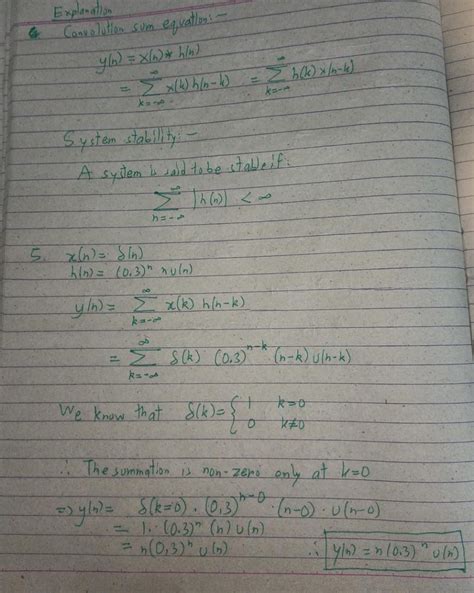 Explanation
4 Convolution sum equation:-
y(n) = x(n) * h(n)
= ∞∑k=-∞ x(k) h(n-k) = ∞∑k=-∞ h(k) x(n-k)
System stability:-
A system is said to be stable if:
∞∑n=-∞ |h(n)| < ∞
5. x(n) = δ(n)
h(n) = (0.3)ⁿ n u(n)
y(n) = ∞∑k=-∞ x(k) h(n-k)
= ∞∑k=-∞ δ(k) (0.3)ⁿ⁻ᵏ (n-k) u(n-k)
We know that δ(k) = { 1 k=0
0 k≠0
∴ The summation is non-zero only at k=0
⇒ y(n) = δ(k=0) · (0.3)ⁿ⁻⁰ · (n-0) · u(n-0)
= 1 · (0.3)ⁿ (n) u(n)
= n(0.3)ⁿ u(n) ∴ y(n) = n(0.3)ⁿ u(n)